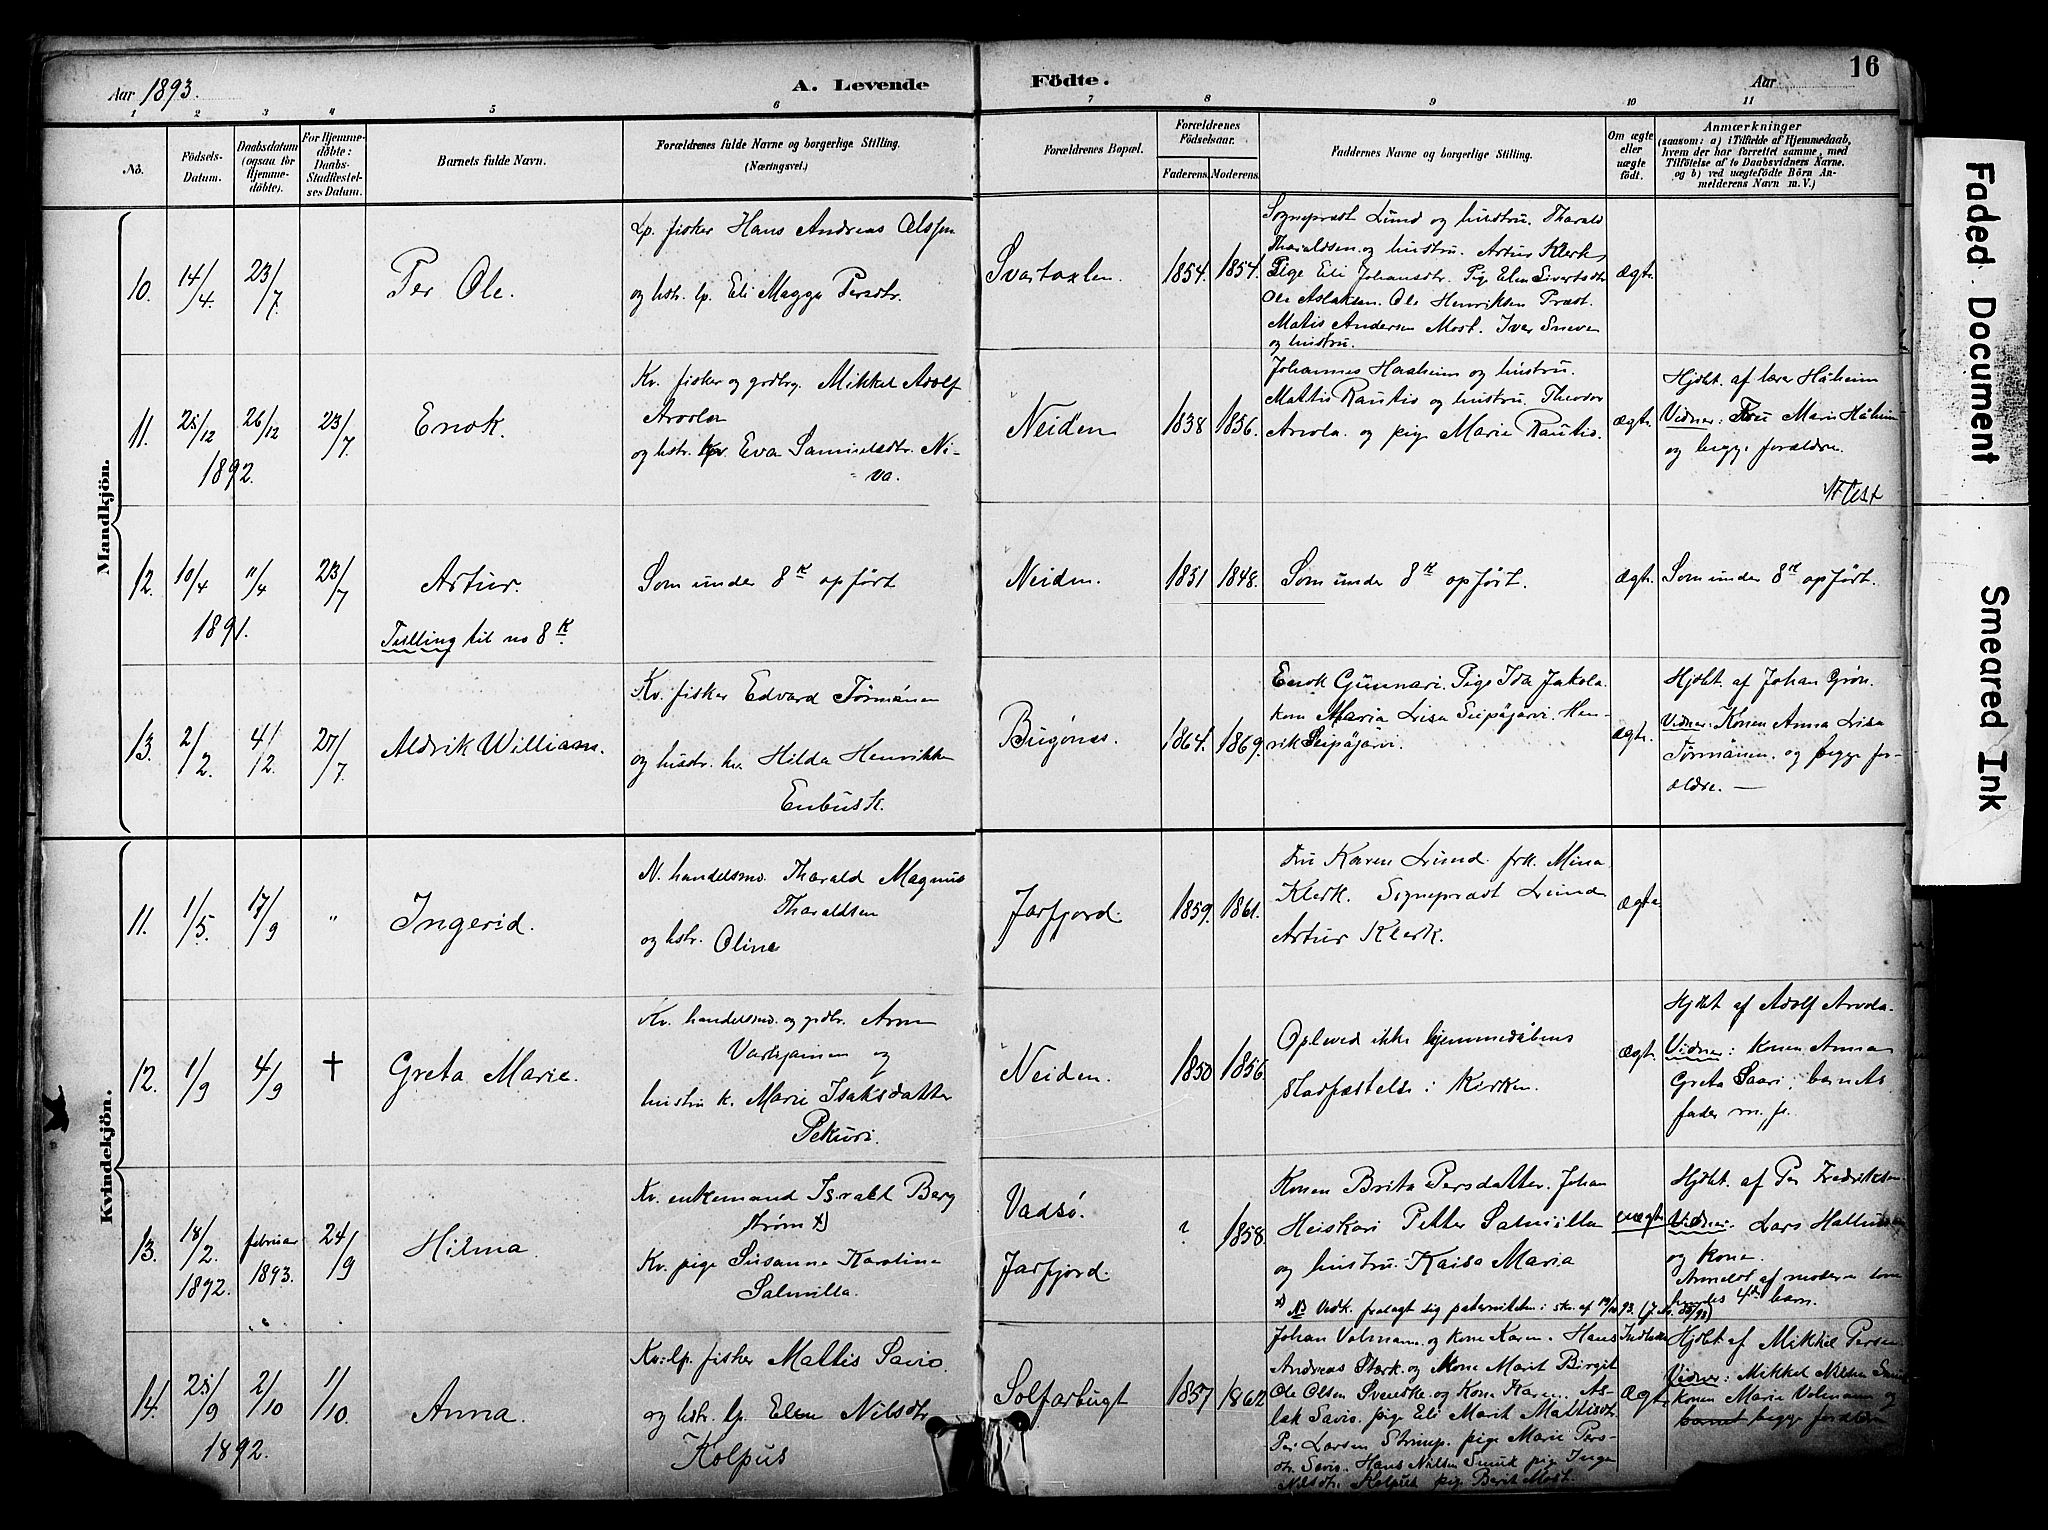 Aar 1893.
A. Levende
Födte.
Aar
16
1 2 3 4 5 6 7 8 9 10 11
No.
Födsels-
Datum.
Daabsdatum
(ogsaa for
Hjemme-
döbte).
For Hjemme-
döbte:
Daabs-
Stadfæstel-
ses Datum.
Barnets fulde Navn.
Forældrenes fulde Navne og borgerlige Stilling.
(Næringsvei.)
Forældrenes Bopæl.
Forældrenes
Födselsaar.
Faderens. Moderens.
Faddernes Navne og borgerlige Stilling.
Om ægte
eller
uægte
født.
Anmærkninger
(saasom: a) i Tilfælde af Hjemmedaab,
hvem der har forrettet samme, med
Tilföielse af to Daabsvidners Navne.
og b) ved uægtefödte Börn An-
melderens Navn m. V.)
Mandkjön.
10. 14/4. 23/7
Per Ole.
Lp. fisker Hans Andreas Olsen
og hstr. lp. Eli Magga Persdtr.
Svartaxlen. 1854. 1854.
Sogneprest Lund og hustru. Tharald
Tharaldsen og hustru. Artur Klerk,
Pige Eli Johansdtr. Pig Elen Sivertsdtr
Ole Aslaksen. Ole Henriksen Præst.
Matis Andersen Most. Iver Sneve
og hustru.
ægte
11. 25/12 26/12 23/7
1892.
Enok.
Kv. fisker og grdbrg. Mikkel Adolf
Arvola
og hstr. kv. Eva Samuelsdtr. Ni-
va.
Neiden 1838 1856.
Johannes Haaheim og hustru.
Mattis Rautio og hustru. Theodor
Arvola. og pige Marie Rautio.
ægte
Hjdbt. af lærer Håheim
Vidner: Fru Marie Håheim
og begge forældre.
12. 10/4 11/4 23/7
1891.
Artur.
Tvilling til no 8K
Som under 8K opført
Neiden. 1831 1848.
Som under 8K opført.
ægte
Som under 8K opført.
13. 2/2. 4/2 27/7.
Aldrik William.
Kv. fisker Edvard Törmänen
og hustr. kv. Hilda Henrikke
Enbusk.
Bugönes. 1864. 1869.
Enok Gunnari. Pige Ida Jakola.
kone Maria Lisa Seipäjärvi. Hen-
rik Seipäjärvi.
ægte
Hjdbt. af Johan Grön.
Vidner: Konen Anna Lisa
Törmänen. og begge for-
ældre. —
Kvindekjön.
11. 1/5. 17/9 "
Ingerid.
N. handelsmd. Tharald Magnus
Tharaldsen
og hstr. Oline
Jarfjord. 1859. 1861.
Fru Karen Lund. frk. Mina
Klerk. Sogneprest Lund
Artur Klerk.
ægte.
12. 1/9 4/9 †
Greta Marie.
Kv. handelsmd. og grdbr. Aron
og
hustru k. Marie Isaksdatter
Pekuri.
Neiden. 1850 1856.
Oplevede ikke hjemmedåbens
stadfæstelse i Kirken.
ægte
Hjdbt af Adolf Arvola.
Vidner: konen Anna
Greta Saari, barnets
fader m. fl.
13. 18/2. februar 24/9
1892. 1893.
Hilma.
Kv. enkemand Israel Berg
strøm x)
Kv. pige Susanne Karoline
Salmilla.
Vadsø.
Jarfjord.
? 1858.
Konen Brita Persdatter. Johan
Heiskari Petter Salmilla
og hustru Kaisa Maria
uægte
Hjdbt. af Per Fredriksen
Vidner: Lars
og kone.
Anmeldt af moderen som
hendes 4de barn.
14. 25/9 2/10 1/10
1892.
Anna.
Kv: lp. fisker Mattis Savio
og hstr. lp. Elen Nilsdtr
Kolpus
Solfarbugt 1857 1862
Johan Volmann og kone Karen. Hans
Andreas Stærk og kone Marit Birgit
Ole Olsen Svenske. og Kone Karen. As-
lak Savio. pige Eli Marit Mattisdtr
Per Larsen Strimp. pige Marie Pers-
dtr. Savio. Hans Nilsen Smuk pige Inga
Nilsdtr. Kolpus pig. Berit Most.
ægte
Hjdbt af Mikkel Persen
Vidner: Mikkel Nilsen
konen Marie Volmann og
barnet begge forældre
Faded Document
Smeared Ink